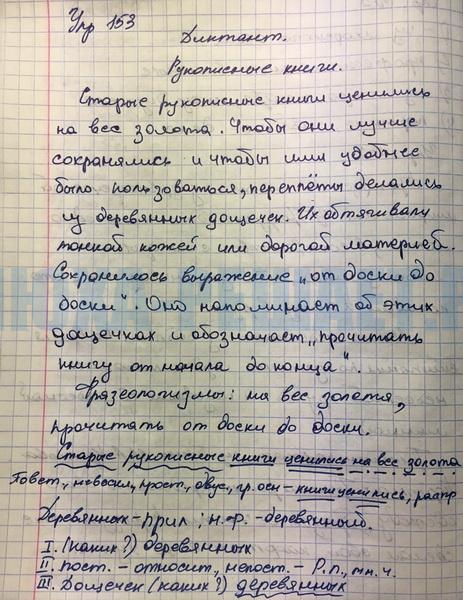 Упр 153
Диктант.
Рукописные книги.
Старые рукописные книги ценились
на вес золота. Чтобы они лучше
сохранялись и чтобы ими удобнее
было пользоваться, переплёты делались
из деревянных дощечек. Их обтягивали
тонкой кожей или дорогой материей.
Сохранилось выражение „от доски до
доски“. Оно напоминает об этих
дощечках и обозначает „прочитать
книгу от начала до конца“.
Фразеологизмы: на вес золота,
прочитать от доски до доски.
Старые рукописные книги ценились на вес золота
Повест., невоскл., прост., двус., гр. осн – книги ценились, распр
Деревянных – прил; н.ф. – деревянный.
I. (каких?) деревянных
II. пост. – относит., непост. – Р.п., мн.ч.
III. Дощечек (каких?) деревянных